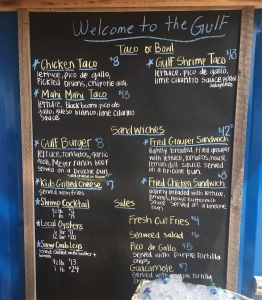 Welcome to the Gulf
Taco or Bowl
Chicken Taco $8
lettuce, pico de gallo,
Pickled onions, chipotle aioli
Gulf Shrimp Taco $13
lettuce, pico de gallo,
lime cilantro sauce
Mahi Mahi Taco $13
lettuce, black beans, pico de
gallo, queso blanco, lime cilantro
sauce
Sandwiches
Gulf Burger $8
lettuce, tomatoes, garlic
aioli, Meyer ranch beef
served on a brioche bun
Kids Grilled Cheese $7
served with fries
Shrimp Cocktail
1/2 lb
1 lb
Local Oysters
Snow Crab Legs
1/2 lb $13
1 lb $24
Fried Grouper Sandwich $12
lightly breaded, fried grouper
with lettuce, tomatoes, house
lemon dill sauce served
on a brioche bun
Fried Chicken Sandwich
lightly breaded chicken with
lettuce, house buttermilk
sauce served on a
brioche bun
Sides
Fresh Cut Fries $4
Seaweed Salad
Pico de Gallo $3
served with purple tortilla
chips
Guacamole $7
served with purple tortilla